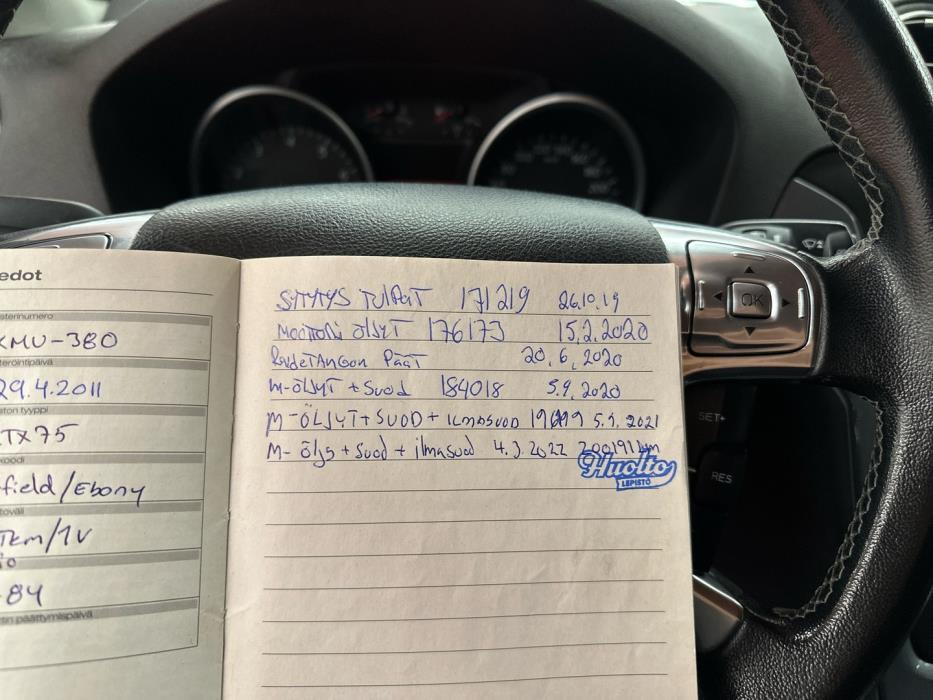 edot
sterinumero
KMU-380
teröintipäivä
29.4.2011
ston tyyppi
TX75
koodi
field/Ebony
toväli
Tkm/1v
-84
tin päättymispäivä
SYTYTYS TULPAT 171219 26.10.19
MOOTTORI ÖLJYT 176173 15.2.2020
RAIDETANGON PÄÄT 20.6.2020
M-ÖLJYT + SUOD 184018 5.9.2020
M-ÖLJYT + SUOD + ILMASUOD 5.9.2021
M-öljy + suod + ilmasuod 4.3.2022 200191 km
Huolto
LEPISTÖ
OK
SET+
RES